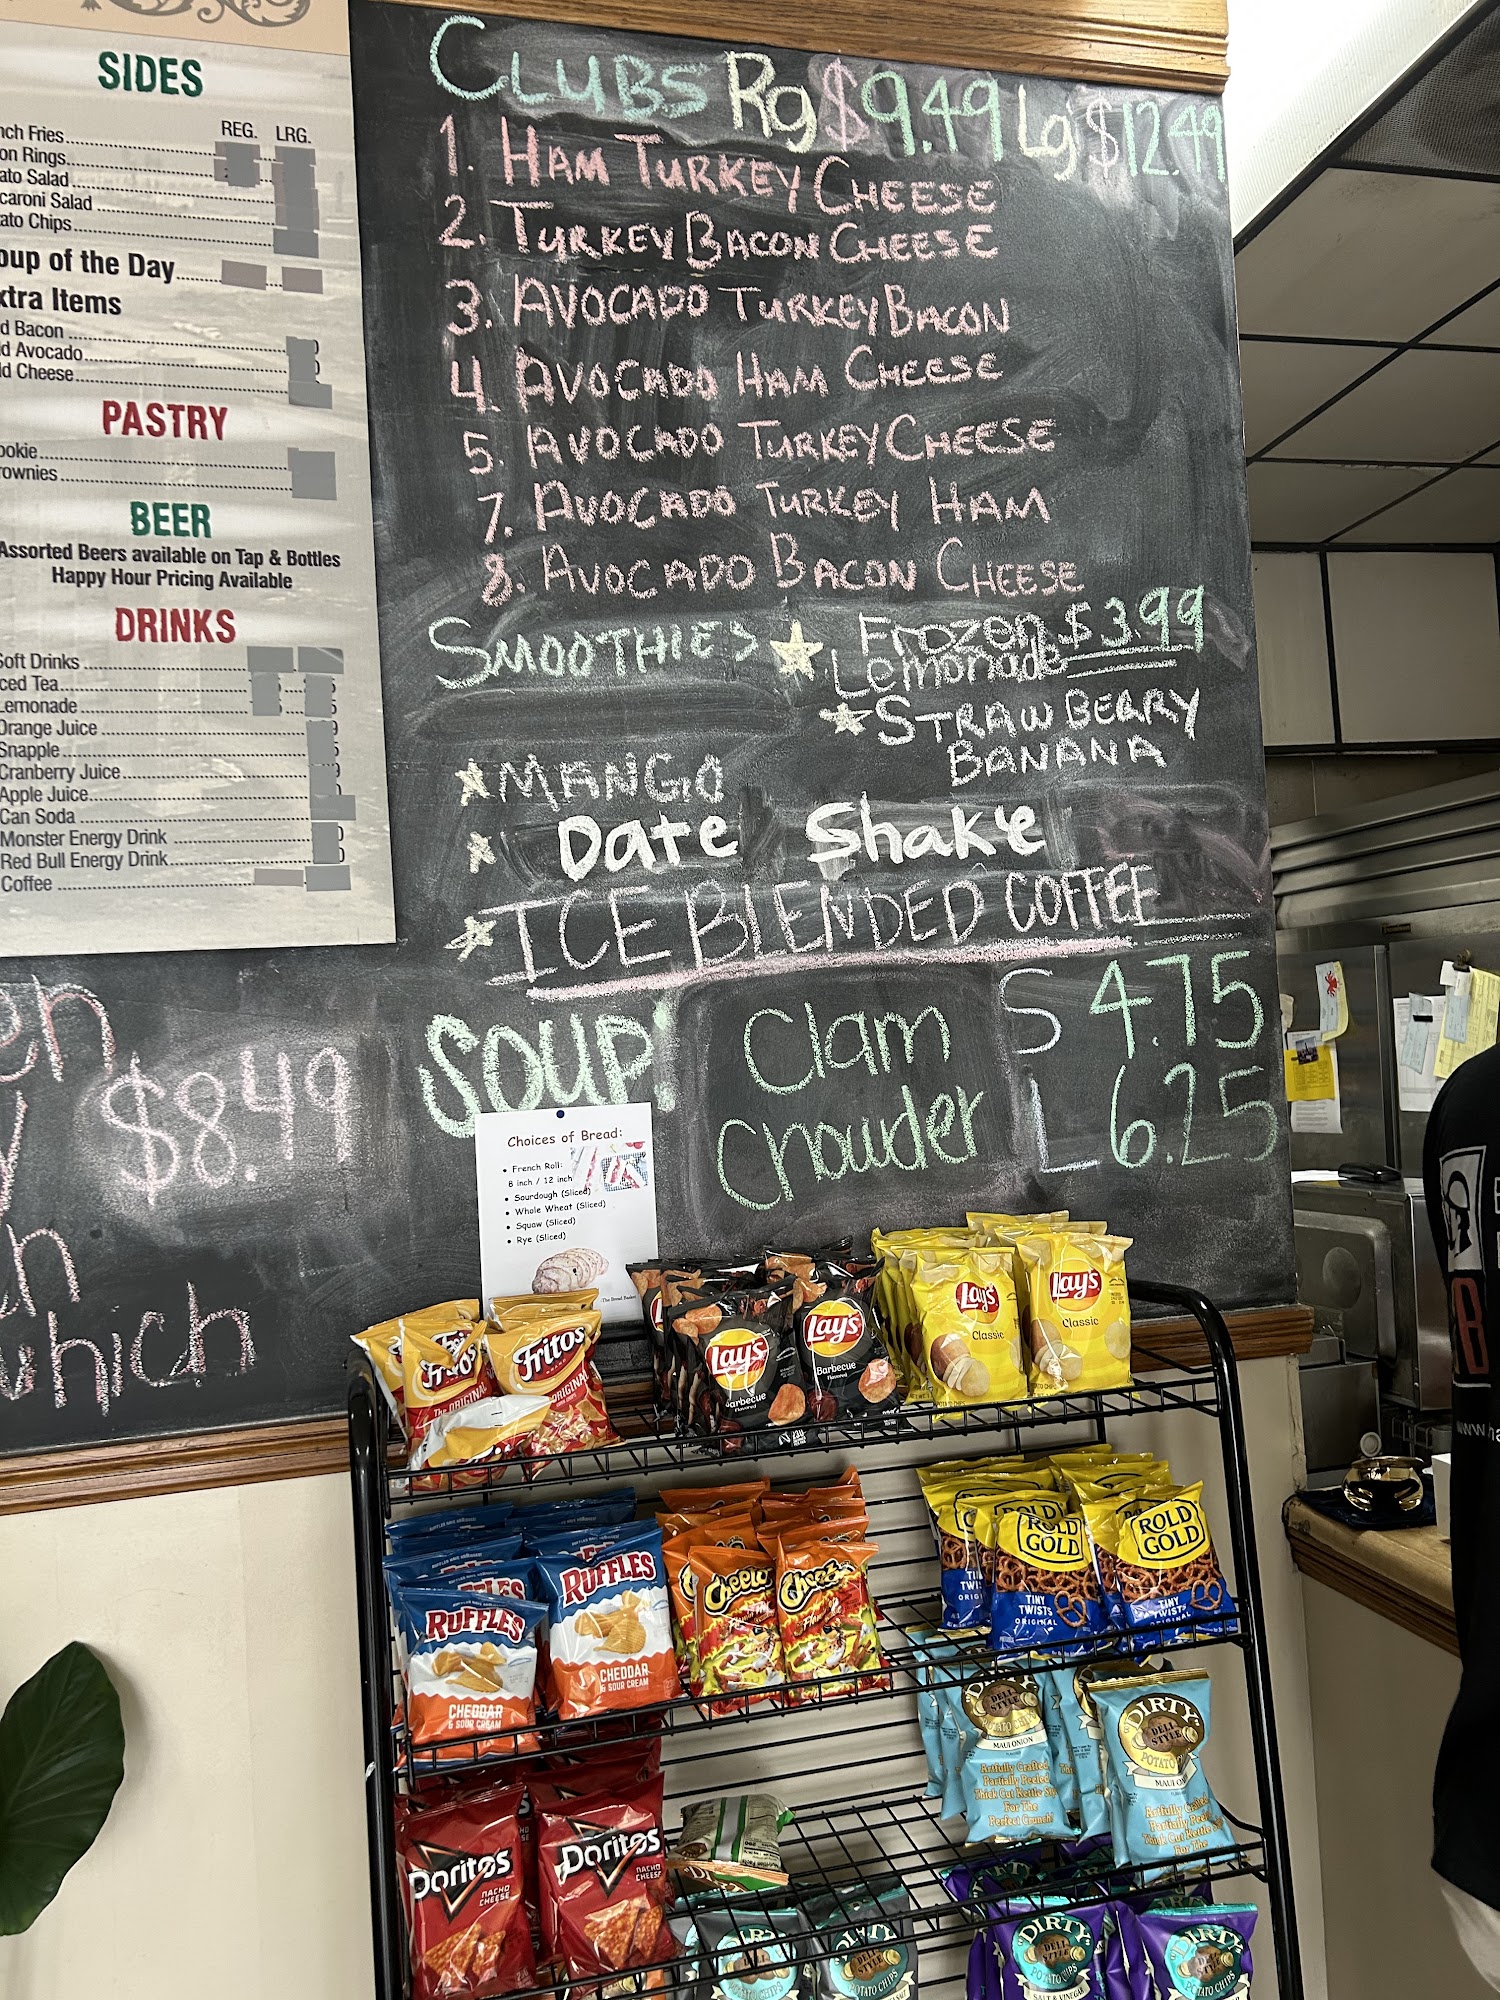 SIDES
REG. LRG.
nch Fries
on Rings
ato Salad
caroni Salad
ato Chips
oup of the Day
xtra Items
d Bacon
d Avocado
d Cheese
PASTRY
ookie
rownies
BEER
Assorted Beers available on Tap & Bottles
Happy Hour Pricing Available
DRINKS
Soft Drinks
ced Tea
Lemonade
Orange Juice
Snapple
Cranberry Juice
Apple Juice
Can Soda
Monster Energy Drink
Red Bull Energy Drink
Coffee
CLUBS Rg $9.49 Lg $12.49
1. HAM TURKEY CHEESE
2. TURKEY BACON CHEESE
3. AVOCADO TURKEY BACON
4. AVOCADO HAM CHEESE
5. AVOCADO TURKEY CHEESE
7. AVOCADO TURKEY HAM
8. AVOCADO BACON CHEESE
SMOOTHIES
FROZEN $3.99
Lemonade
STRAWBERRY
BANANA
MANGO
Date Shake
ICE BLENDED COFFEE
SOUP! Clam S 4.75
Chowder L 6.25
en
$8.49
hich
Choices of Bread:
• French Roll:
8 inch / 12 inch
• Sourdough (Sliced)
• Whole Wheat (Sliced)
• Squaw (Sliced)
• Rye (Sliced)
The Bread Basket
Fritos
Fritos
The ORIGINAL
ORIGINAL
Lay's
Barbecue
Flavored
Lay's
Barbecue
Flavored
Lay's
Classic
Lay's
Classic
RUFFLES
CHEDDAR
& SOUR CREAM
RUFFLES
CHEDDAR
& SOUR CREAM
Cheeto
Cheeto
ROLD
GOLD
TINY
TWISTS
ORIGINAL
ROLD
GOLD
TINY
TWISTS
ORIGINAL
DIRTY
DELI STYLE
POTATO CHIPS
MAUI ONION
Artfully Crafted
Partially Peeled
Thick Cut Kettle Style
For The
Perfect Crunch!
DIRTY
DELI STYLE
POTATO
MAUI ON
Artfully Crafte
Partially Peele
Thick Cut Kettle
For The
Doritos
NACHO
CHEESE
Doritos
NACHO
CHEESE
DIRTY
DELI STYLE
POTATO CHIPS
DIRTY
DELI STYLE
POTATO CHIPS
DIRTY
DELI STYLE
POTATO CHIPS
SALT & VINEGAR
DIRTY
DELI STYLE
POTATO CHIPS